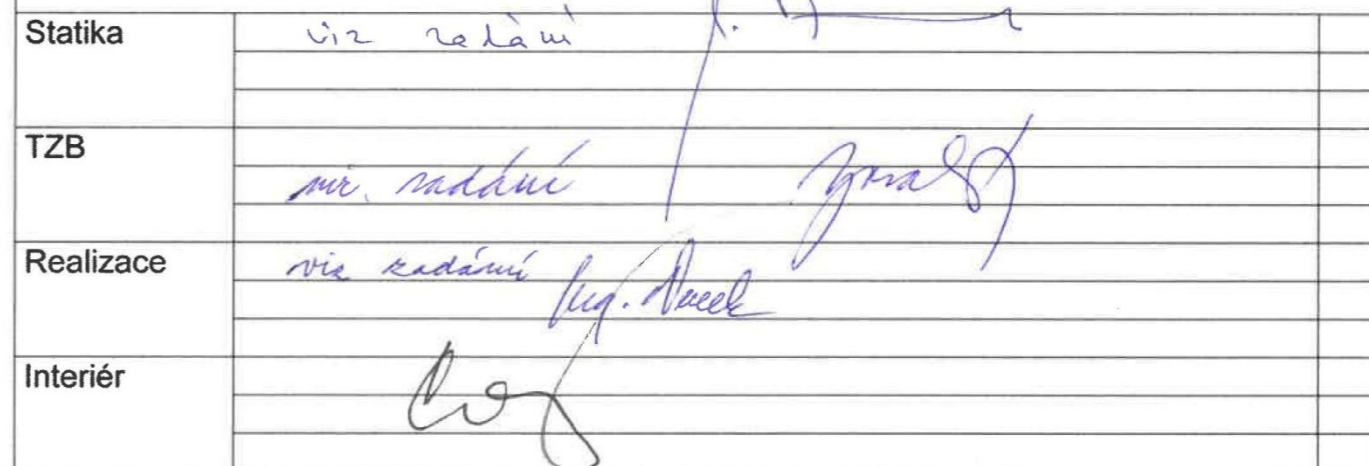 Statika viz zadání
TZB viz. zadání
Realizace viz zadání
Ing.
Interiér